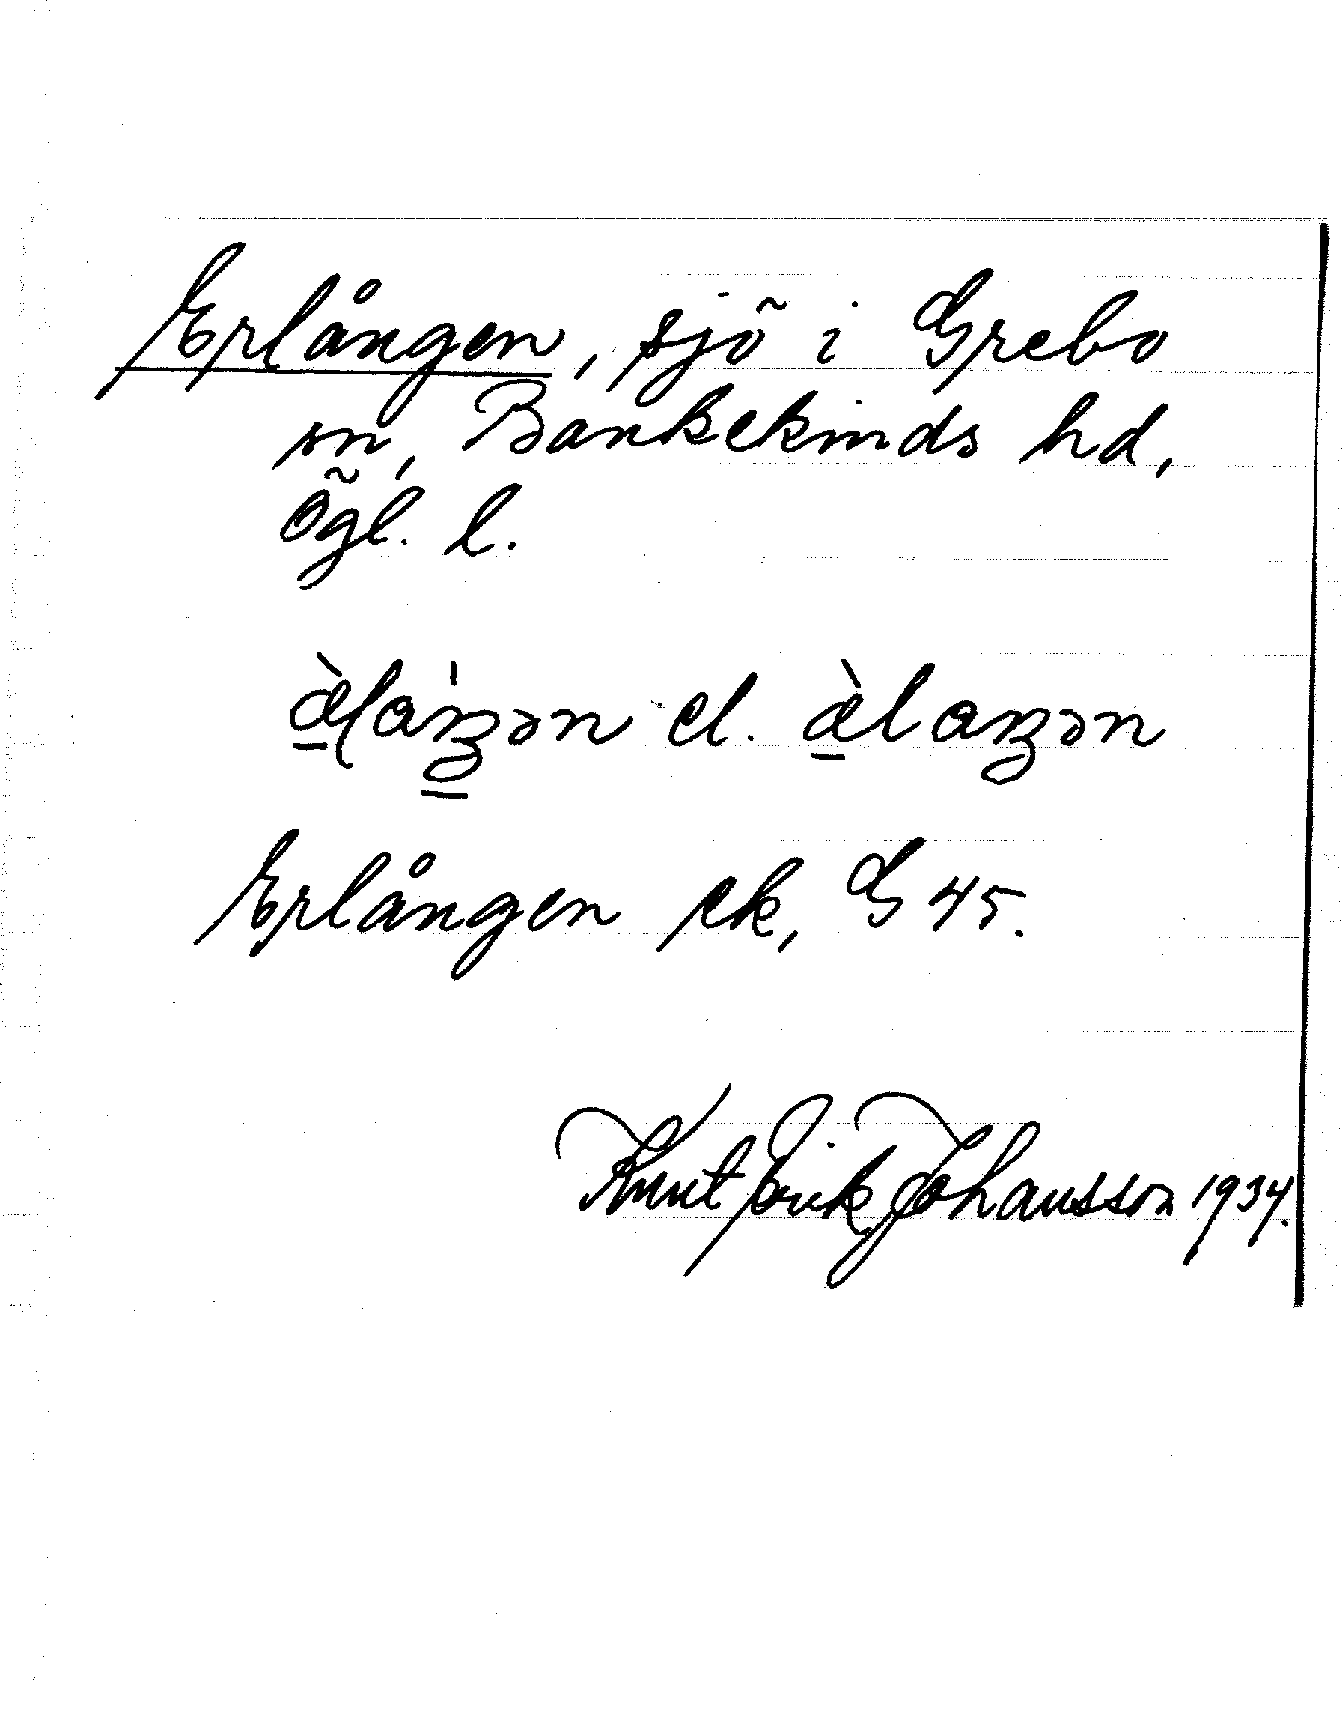 Erlången, sjö i Grebo
sn, Bankekinds hd,
Ögl. l.
æ̀ḷa'ŋən el. æ̀laŋən
Erlången ek, G 45.
Knut Erik Johansson 1934.